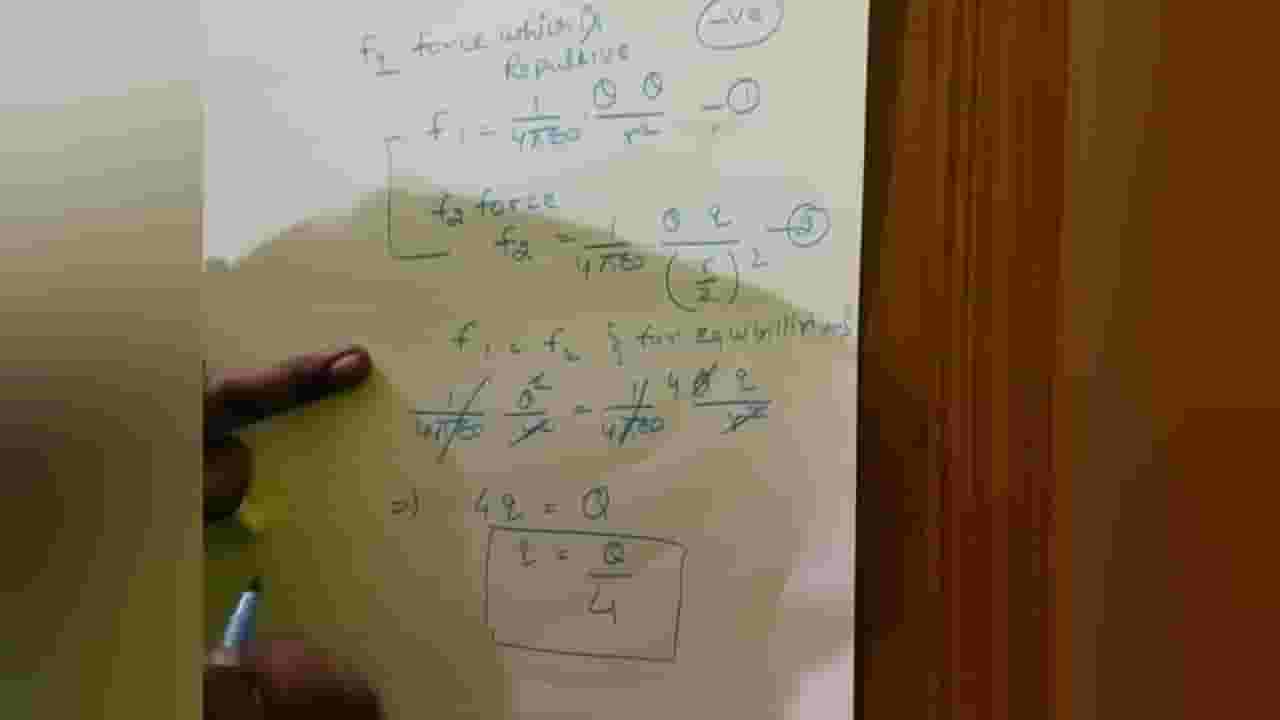 f1 force which is -ve
Repulsive
f1 = 1/4πε0 Q Q/r² - ①
f2 force
f2 = 1/4πε0 Q q/(r/2)² - ②
f1 = f2 } for equilibrium
1/4πε0 Q²/r² = 1/4πε0 4Q q/r²
=) 4q = Q
q = Q/4